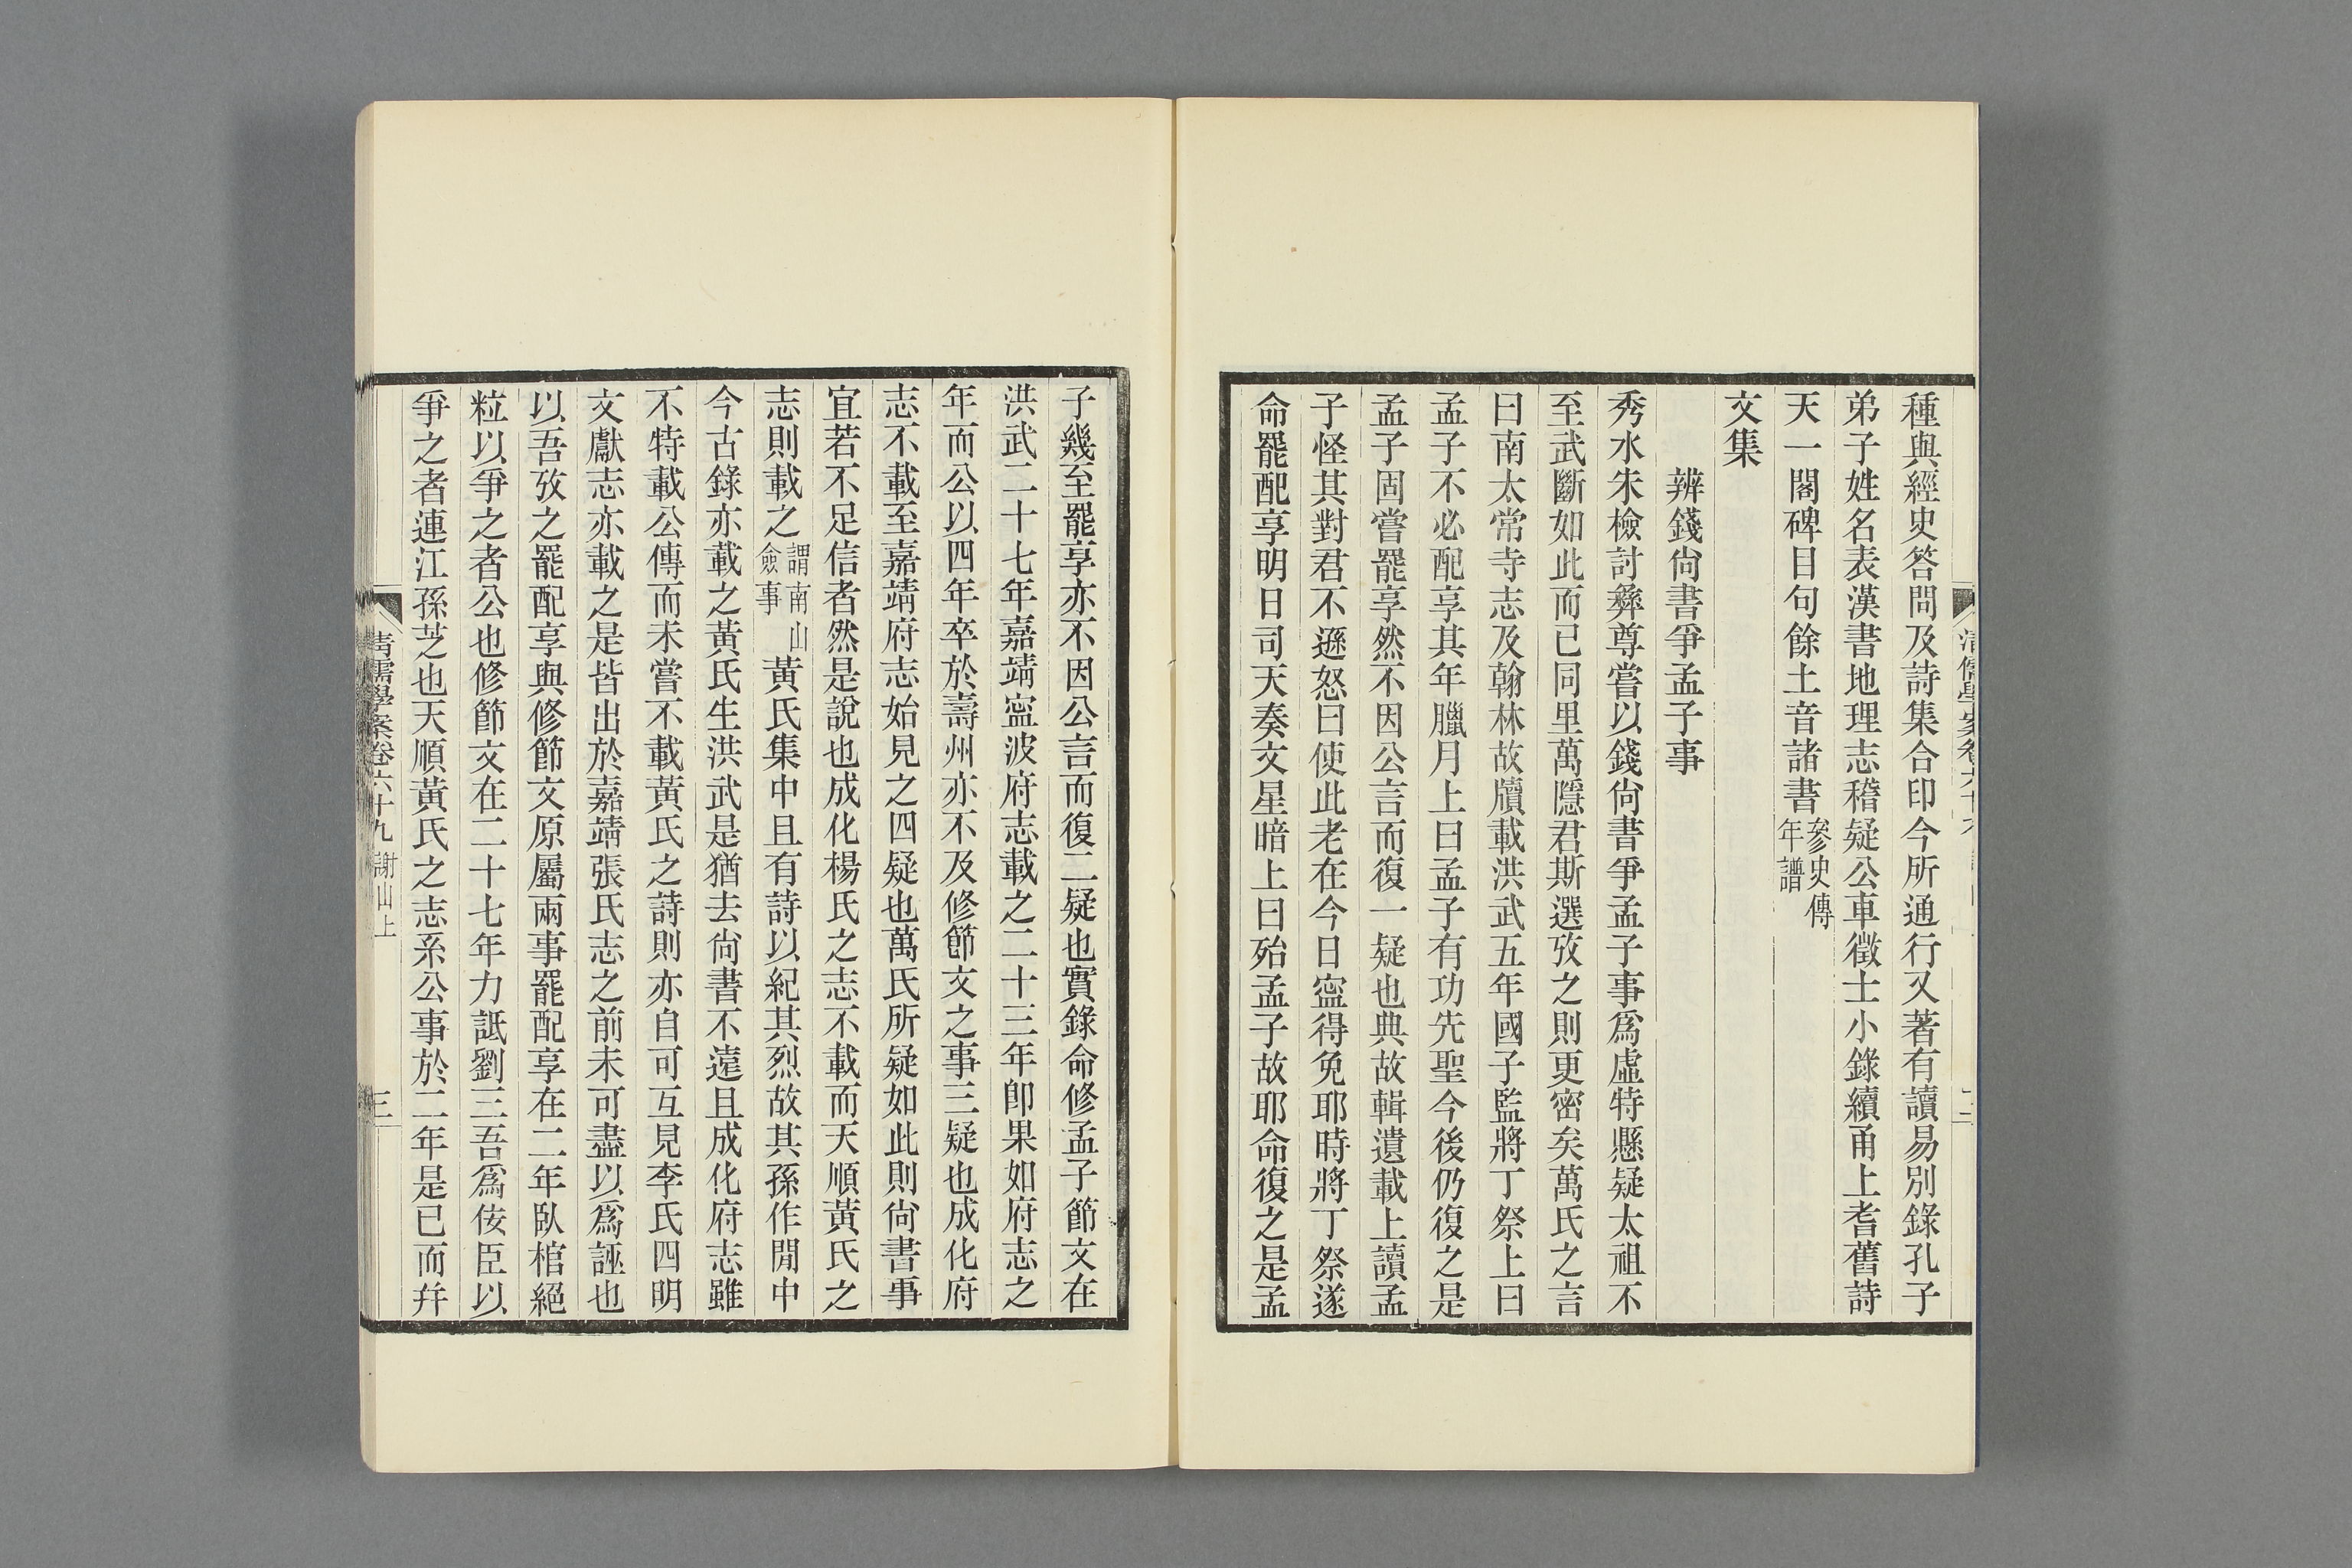 種與經史答問及詩集合印今所通行又著有讀易別錄孔子
弟子姓名表漢書地理志稽疑公車徵士小錄續甬上耆舊詩
天一閣碑目句餘土音諸書參史傳年譜
文集
辨錢尙書爭孟子事
秀水朱檢討彝尊嘗以錢尙書爭孟子事爲虛特懸疑太祖不
至武斷如此而已同里萬隱君斯選攷之則更密矣萬氏之言
曰南太常寺志及翰林故牘載洪武五年國子監將丁祭上曰
孟子不必配享其年臘月上曰孟子有功先聖今後仍復之是
孟子固嘗罷享然不因公言而復一疑也典故輯遺載上讀孟
子怪其對君不遜怒曰使此老在今日寍得免耶時將丁祭遂
命罷配享明日司天奏文星暗上曰殆孟子故耶命復之是孟
子幾至罷享亦不因公言而復二疑也實錄命修孟子節文在
洪武二十七年嘉靖寍波府志載之二十三年卽果如府志之
年而公以四年卒於壽州亦不及修節文之事三疑也成化府
志不載至嘉靖府志始見之四疑也萬氏所疑如此則尙書事
宜若不足信者然是說也成化楊氏之志不載而天順黃氏之
志則載之謂南山僉事黃氏集中且有詩以紀其烈故其孫作閒中
今古錄亦載之黃氏生洪武是猶去尙書不遠且成化府志雖
不特載公傳而未嘗不載黃氏之詩則亦自可互見李氏四明
文獻志亦載之是皆出於嘉靖張氏志之前未可盡以爲誣也
以吾攷之罷配享與修節文原屬兩事罷配享在二年臥棺絕
粒以爭之者公也修節文在二十七年力詆劉三吾爲佞臣以
爭之者連江孫芝也天順黃氏之志系公事於二年是已而幷
清儒學案卷六十九 謝山上
三